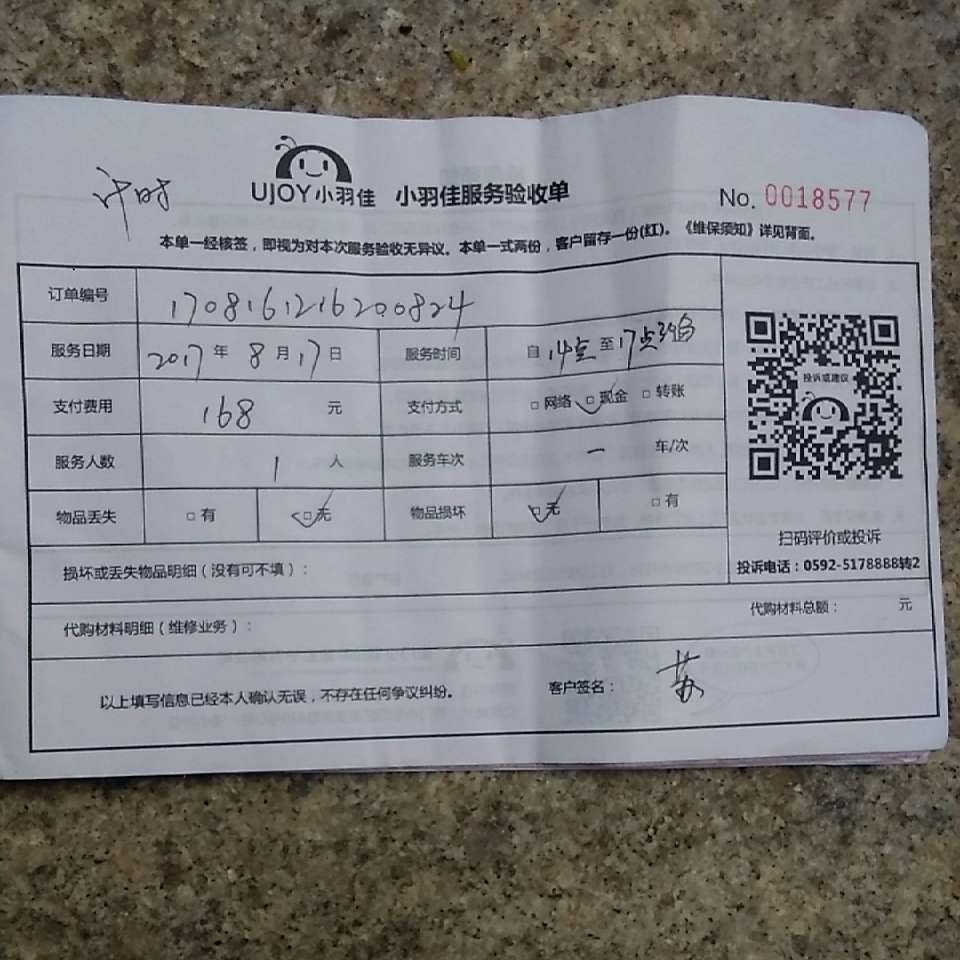 计时
UJOY小羽佳 小羽佳服务验收单 No. 0018577
本单一经核签，即视为对本次服务验收无异议。本单一式两份，客户留存一份(红)。《维保须知》详见背面。
订单编号 1708161216200824
服务日期 2017 年 8 月 17 日 服务时间 自 14点 至 17点
支付费用 168 元 支付方式 □ 网络 □ 现金 □ 转账
服务人数 1 人 服务车次 一 车/次
物品丢失 □ 有 □ 无 物品损坏 □ 无 □ 有
投诉或建议
扫码评价或投诉
投诉电话：0592-5178888转2
损坏或丢失物品明细（没有可不填）：
代购材料明细（维修业务）： 代购材料总额： 元
以上填写信息已经本人确认无误，不存在任何争议纠纷。 客户签名： 苏